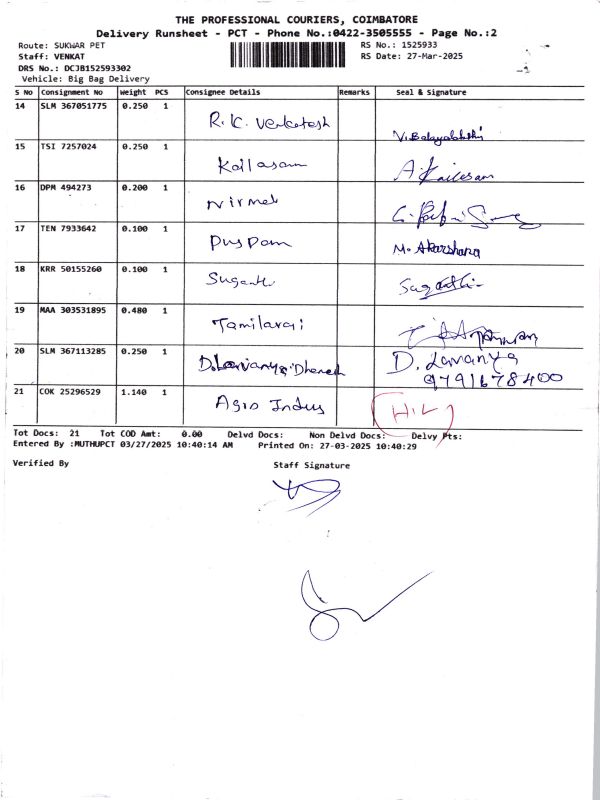 THE PROFESSIONAL COURIERS, COIMBATORE
Delivery Runsheet - PCT - Phone No.:0422-3505555 - Page No.:2
Route: SUKWAR PET RS No.: 1525933
Staff: VENKAT RS Date: 27-Mar-2025
DRS No.: DCJB152593302
Vehicle: Big Bag Delivery
S No Consignment No Weight PCS Consignee Details Remarks Seal & Signature
14 SLM 367051775 0.250 1 R.K. Venkatesh
15 TSI 7257024 0.250 1 Kailasam A. Kailesam
16 DPM 494273 0.200 1 Nirmal
17 TEN 7933642 0.100 1 Puspam M. Akarshana
18 KRR 50155260 0.100 1 Suganthi Suganthi
19 MAA 303531895 0.480 1 Tamilarasi
20 SLM 367113285 0.250 1 D. Lavanya D. Lavanya
9791678400
21 COK 25296529 1.140 1 Agio Indus
Tot Docs: 21 Tot COD Amt: 0.00 Delvd Docs: Non Delvd Docs: Delvy Pts:
Entered By :MUTHUPCT 03/27/2025 10:40:14 AM Printed On: 27-03-2025 10:40:29
Verified By Staff Signature